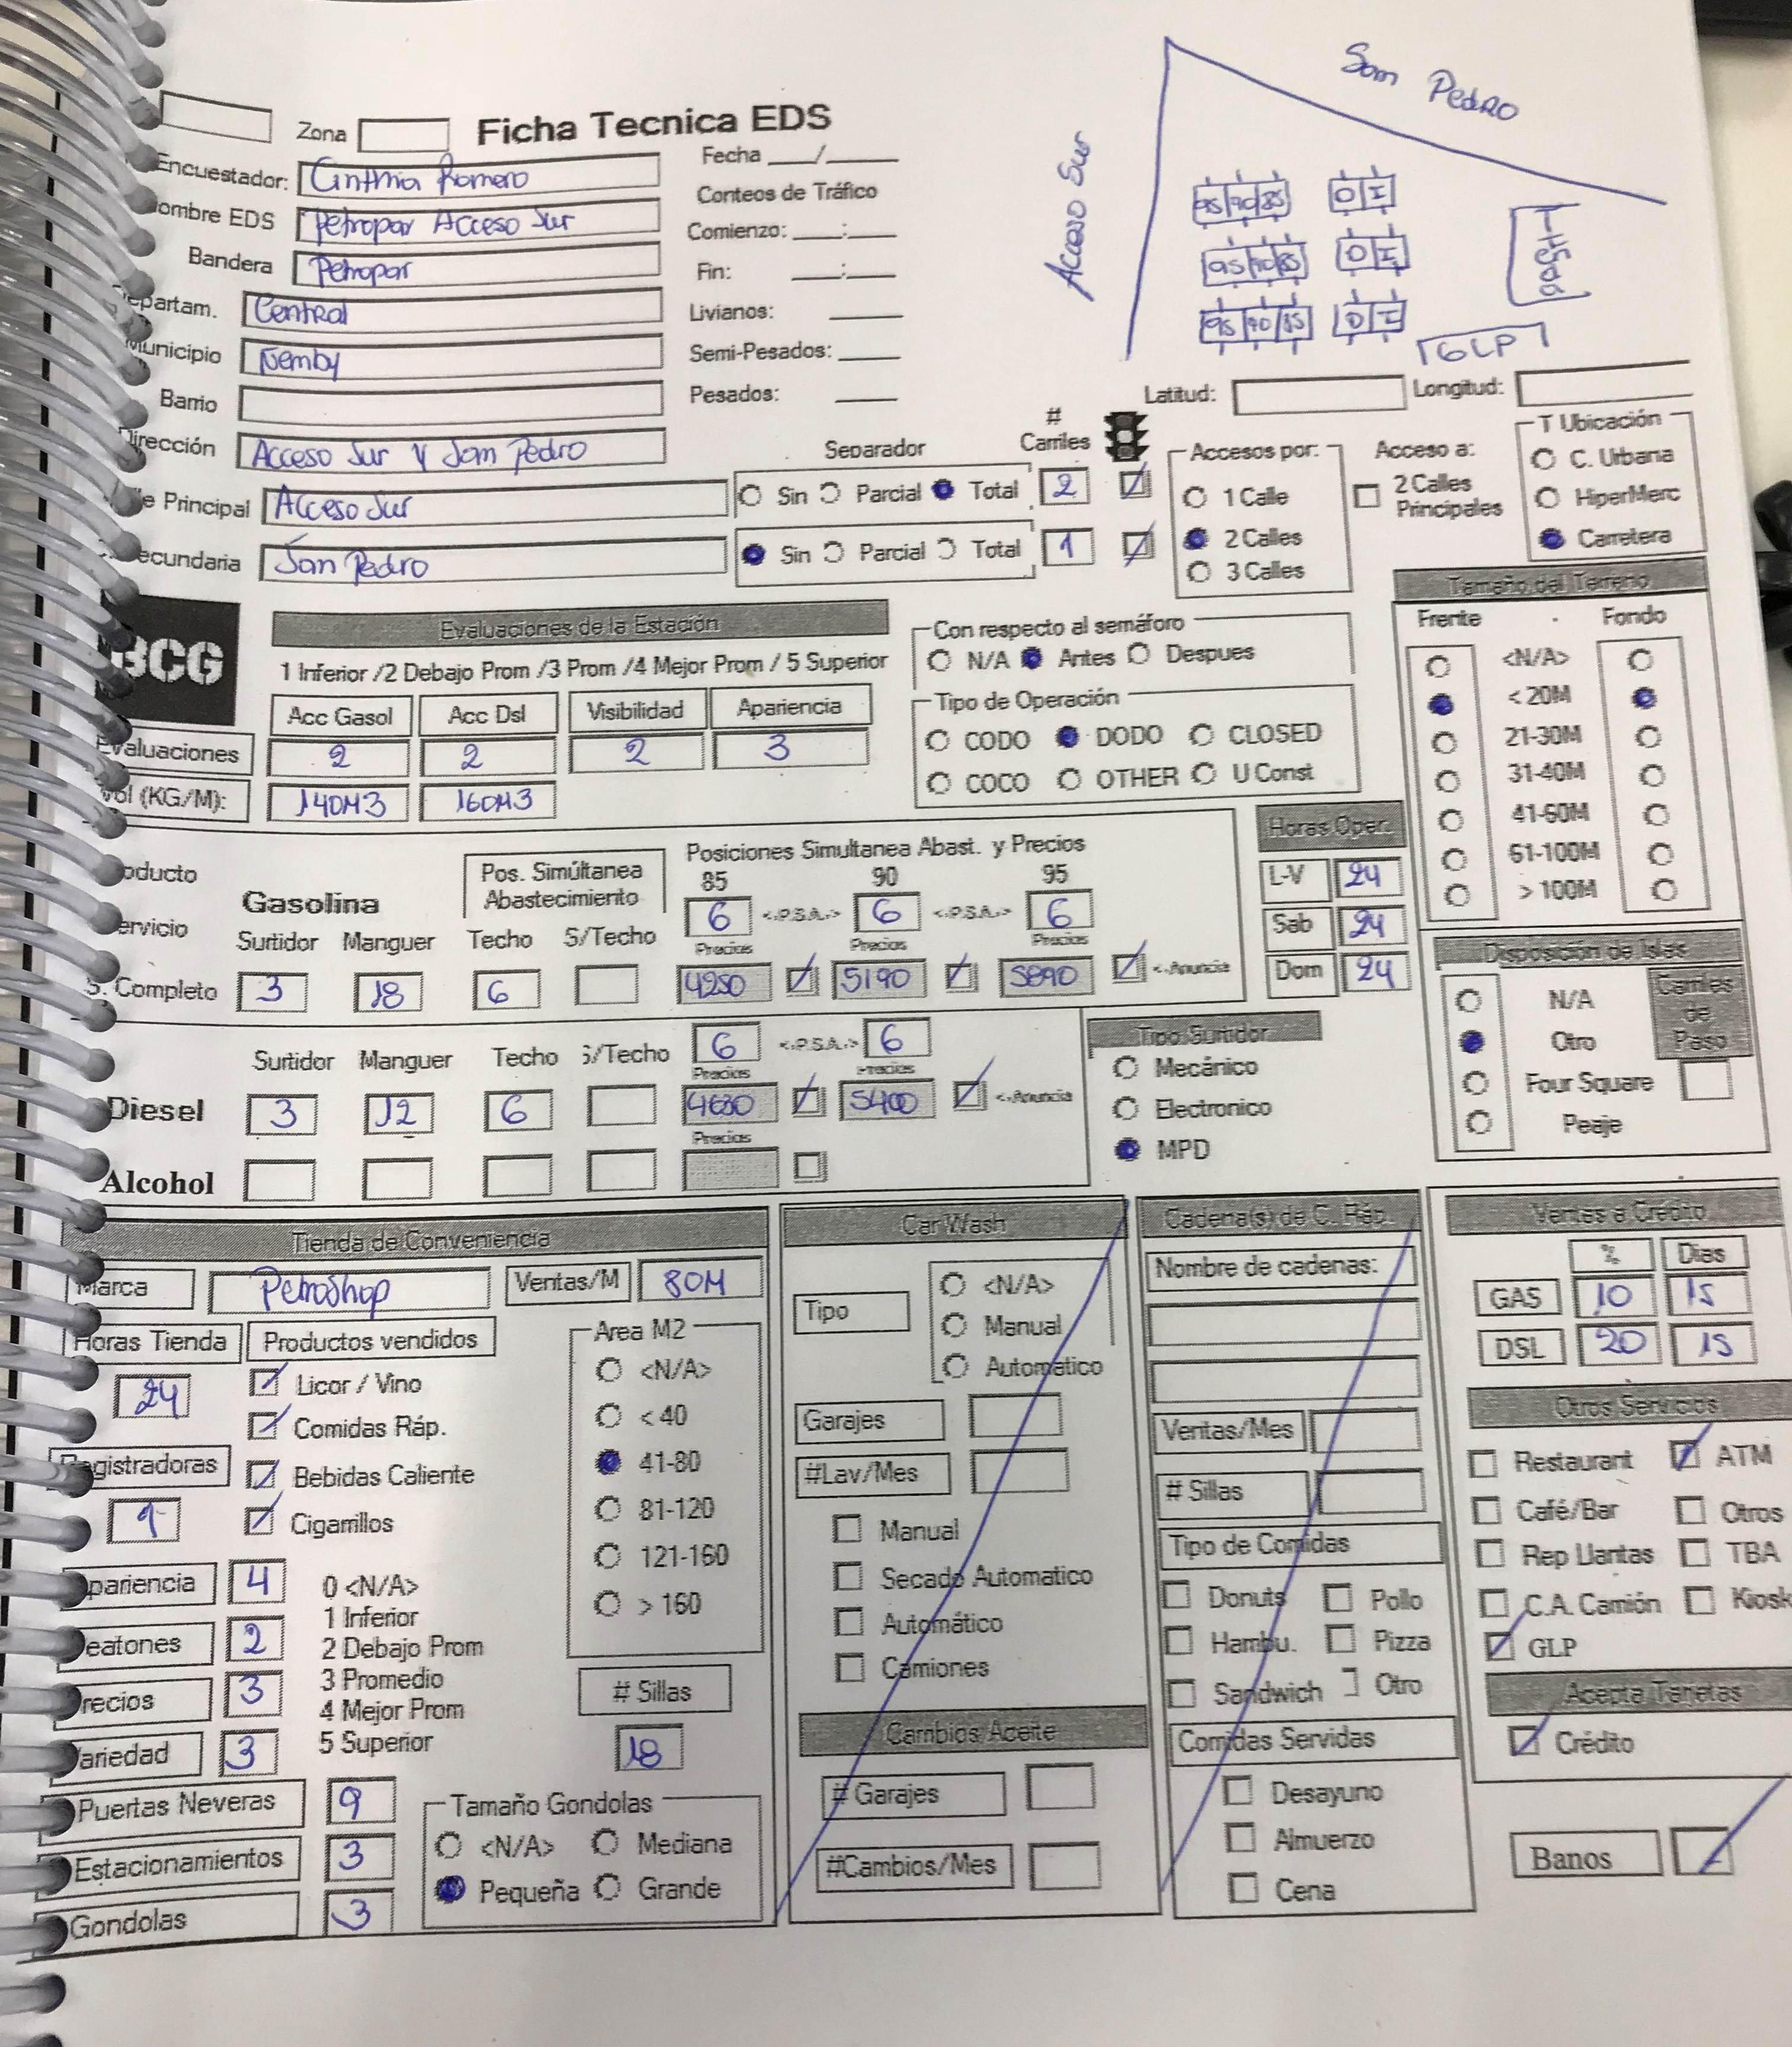 Zona
Ficha Tecnica EDS
Encuestador: Cinthia Romero
ombre EDS Petropar Acceso Sur
Bandera Petropar
epartam. Central
Municipio Ñemby
Barrio
Dirección Acceso Sur y San Pedro
e Principal Acceso Sur
ecundaria San Pedro
Fecha ___/_____
Conteos de Tráfico
Comienzo: ___:___
Fin: ___:___
Livianos:
Semi-Pesados:
Pesados:
Acceso Sur
San Pedro
95 90 85 D I
95 90 85 D I
95 90 85 D I
GLP
Latitud: Longitud:
Separador # Carriles
Sin Parcial Total 2
Sin Parcial Total 1
Accesos por:
1 Calle
2 Calles
3 Calles
Acceso a:
2 Calles Principales
T Ubicación
C. Urbana
HiperMerc
Carretera
BCG
Evaluaciones de la Estación
1 Inferior /2 Debajo Prom /3 Prom /4 Mejor Prom / 5 Superior
Acc Gasol Acc Dsl Visibilidad Apariencia
Evaluaciones 2 2 2 3
Vol (KG/M): 140M3 160M3
Con respecto al semáforo
N/A Antes Despues
Tipo de Operación
CODO DODO CLOSED
COCO OTHER U Const
Tamaño del Terreno
Frente - Fondo
<N/A>
< 20M
21-30M
31-40M
41-60M
61-100M
> 100M
oducto
ervicio
Gasolina
Pos. Simúltanea Abastecimiento
Posiciones Simultanea Abast. y Precios
85 90 95
6 <.P.S.A.> 6 <.P.S.A.> 6
Surtidor Manguer Techo S/Techo Precios Precios Precios
S. Completo 3 18 6 4250 5190 5890 <-Anuncia
Horas Oper.
L-V 24
Sab 24
Dom 24
6 <.P.S.A.> 6
Surtidor Manguer Techo S/Techo Precios Precios
Diesel 3 12 6 4630 5400 <-Anuncia
Precios
Alcohol
Tipo Surtidor
Mecánico
Electronico
MPD
Disposición de Islas
N/A
Otro
Four Square
Peaje
Carriles de Paso
Tienda de Conveniencia
Marca Petroshop Ventas/M 80M
Horas Tienda Productos vendidos
24
Licor / Vino
Comidas Ráp.
Registradoras
Bebidas Caliente
1
Cigarrillos
Area M2
<N/A>
< 40
41-80
81-120
121-160
> 160
pariencia 4
eatones 2
recios 3
ariedad 3
0 <N/A>
1 Inferior
2 Debajo Prom
3 Promedio
4 Mejor Prom
5 Superior
# Sillas
18
Puertas Neveras 9
Estacionamientos 3
Gondolas 3
Tamaño Gondolas
<N/A> Mediana
Pequeña Grande
Car Wash
Tipo
<N/A>
Manual
Automatico
Garajes
#Lav/Mes
Manual
Secado Automatico
Automático
Camiones
Cambios Aceite
# Garajes
#Cambios/Mes
Cadena(s) de C. Ráp.
Nombre de cadenas:
Ventas/Mes
# Sillas
Tipo de Comidas
Donuts Pollo
Hambu. Pizza
Sandwich Otro
Comidas Servidas
Desayuno
Almuerzo
Cena
Ventas a Crédito
% Dias
GAS 10 15
DSL 20 15
Otros Servicios
Restaurant ATM
Café/Bar Otros
Rep Llantas TBA
C.A. Camión Kiosk
GLP
Acepta Tarjetas
Crédito
Banos